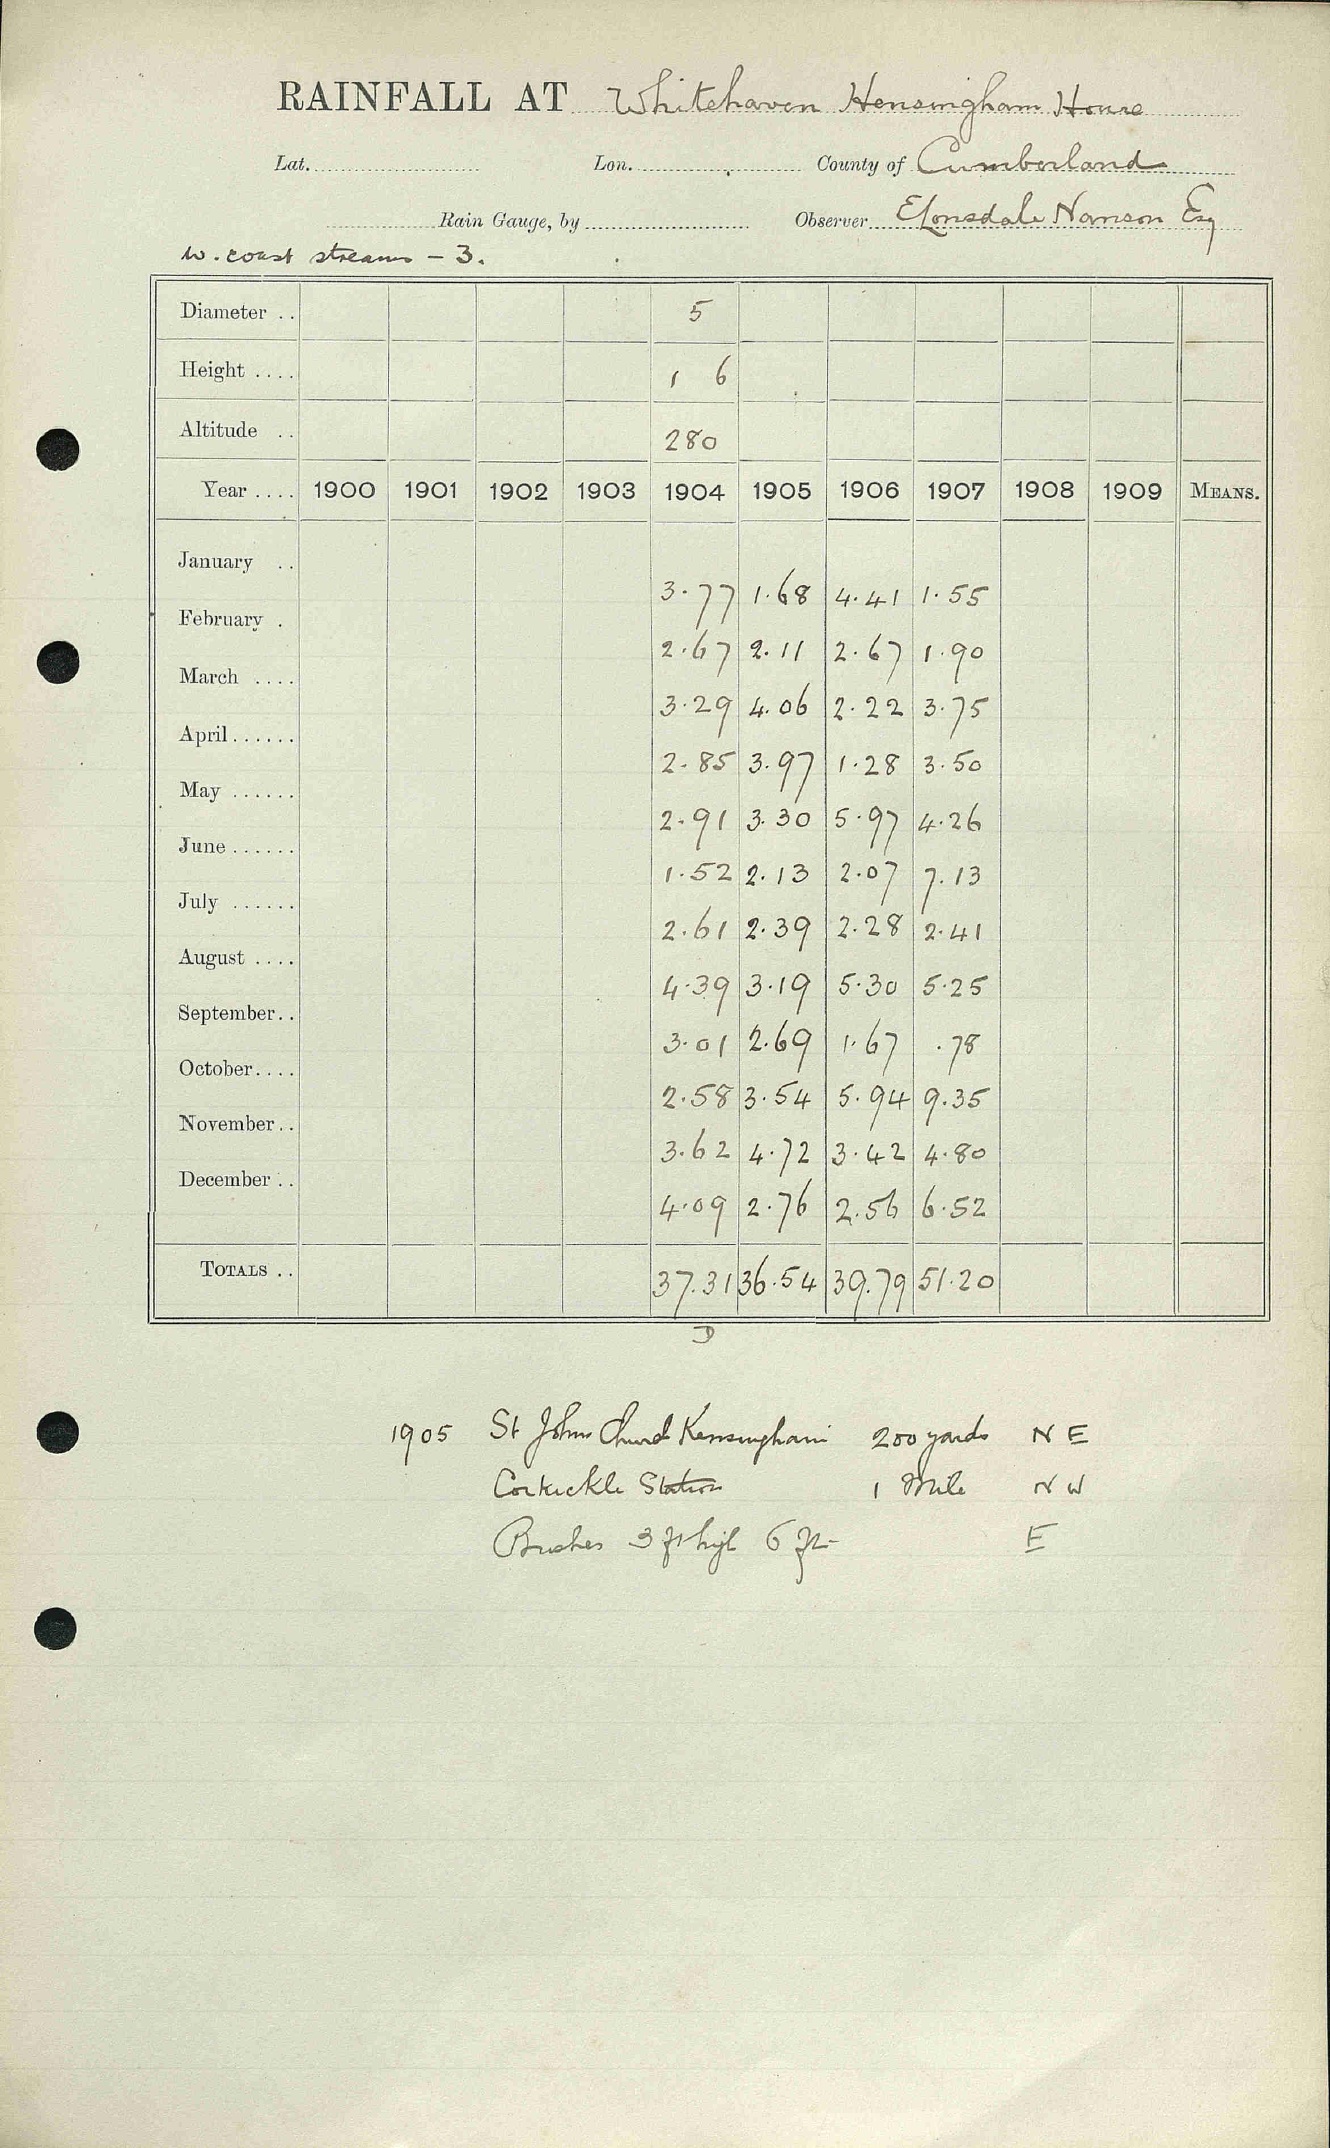 RAINFALL AT Whitehaven Hensingham House
Lat. Lon. County of Cumberland
Rain Gauge, by Observer E Lonsdale Nanson Esq
W. coast streams - 3.
Diameter .. 5
Height .... 1 6
Altitude .. 280
Year .... 1900 1901 1902 1903 1904 1905 1906 1907 1908 1909 MEANS.
January .. 3.77 1.68 4.41 1.55
February . 2.67 2.11 2.67 1.90
March .... 3.29 4.06 2.22 3.75
April ...... 2.85 3.97 1.28 3.50
May ...... 2.91 3.30 5.97 4.26
June ...... 1.52 2.13 2.07 7.13
July ...... 2.61 2.39 2.28 2.41
August .... 4.39 3.19 5.30 5.25
September .. 3.01 2.69 1.67 .78
October .... 2.58 3.54 5.94 9.35
November .. 3.62 4.72 3.42 4.80
December .. 4.09 2.76 2.56 6.52
TOTALS .. 37.31 36.54 39.79 51.20
1905 St Johns Church Hensingham 200 yards N E
Corkickle Station 1 Mile N W
Bushes 3 ft high 6 ft E